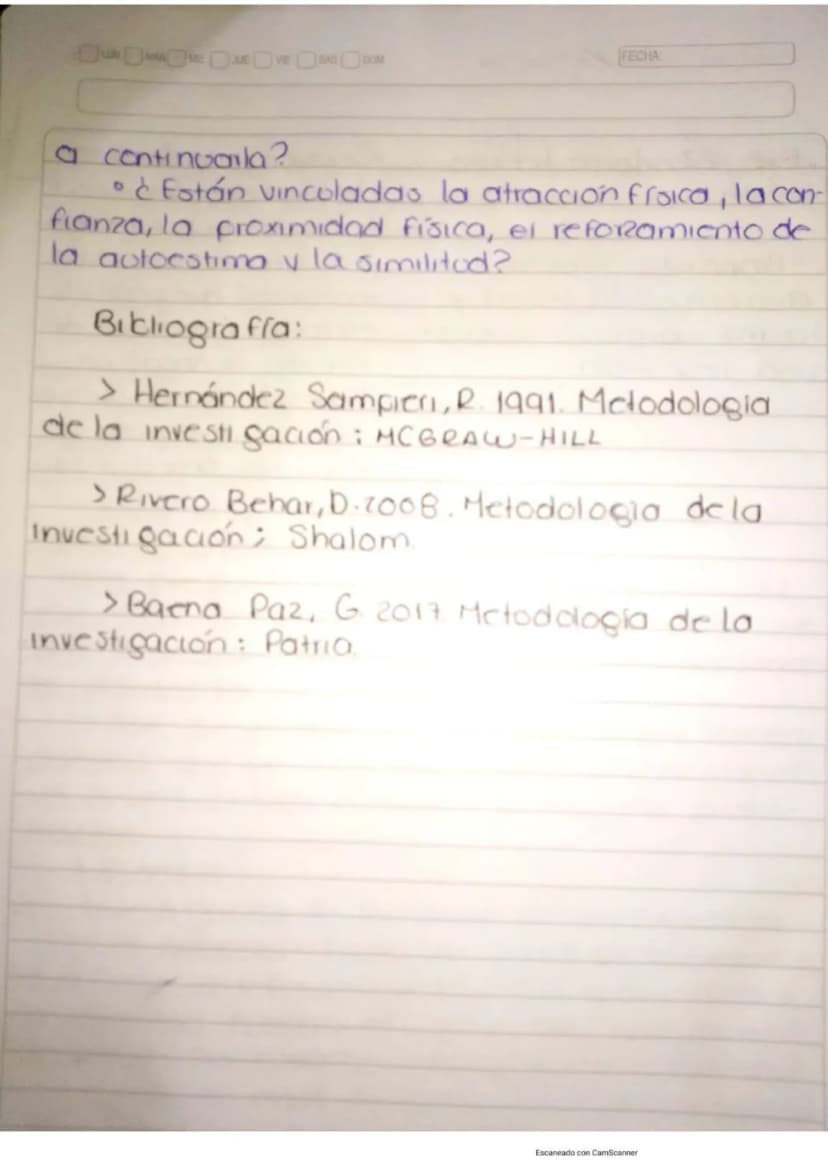 LUN MAR MIE JUE VIE SAB DOM FECHA:
a continuarla?
° ¿Están vinculadas la atracción física, la con-
fianza, la proximidad física, el reforzamiento de
la autoestima y la similitud?
Bibliografía:
> Hernández Sampieri, R. 1991. Metodologia
de la investigación: MCGRAW-HILL
> Rivero Behar, D. 2008. Metodologia de la
Investigación; Shalom.
> Baena Paz, G. 2017 Metodologia de la
investigación: Patria.
Escaneado con CamScanner